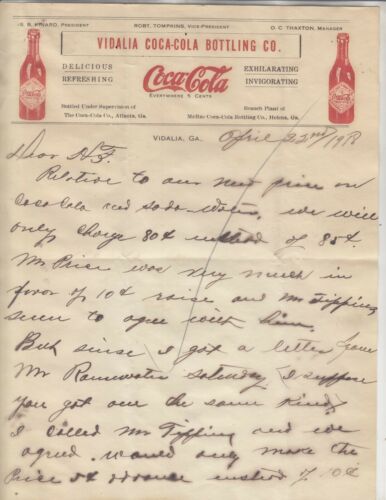 S. S. KINARD, PRESIDENT ROBT. TOMPKINS, VICE-PRESIDENT O. C. THAXTON, MANAGER
VIDALIA COCA-COLA BOTTLING CO.
DELICIOUS
REFRESHING
Coca-Cola
EVERYWHERE 5 CENTS
EXHILARATING
INVIGORATING
Bottled Under Supervision of
The Coca-Cola Co., Atlanta, Ga.
Branch Plant of
McRae Coca-Cola Bottling Co., Helena, Ga.
VIDALIA, GA. April 22nd 1918
Dear H.F.
Relative to our new price on
Coca Cola and soda water, we will
only charge 80¢ instead of 85¢.
Mr Price was very much in
favor of 10¢ raise and Mr Tipping
seem to agree with him.
But since I got a letter from
Mr Rainwater Saturday, I suppose
you got one the same kind,
I called Mr Tipping and we
agreed would only make the
Price 5¢ advance instead of 10¢